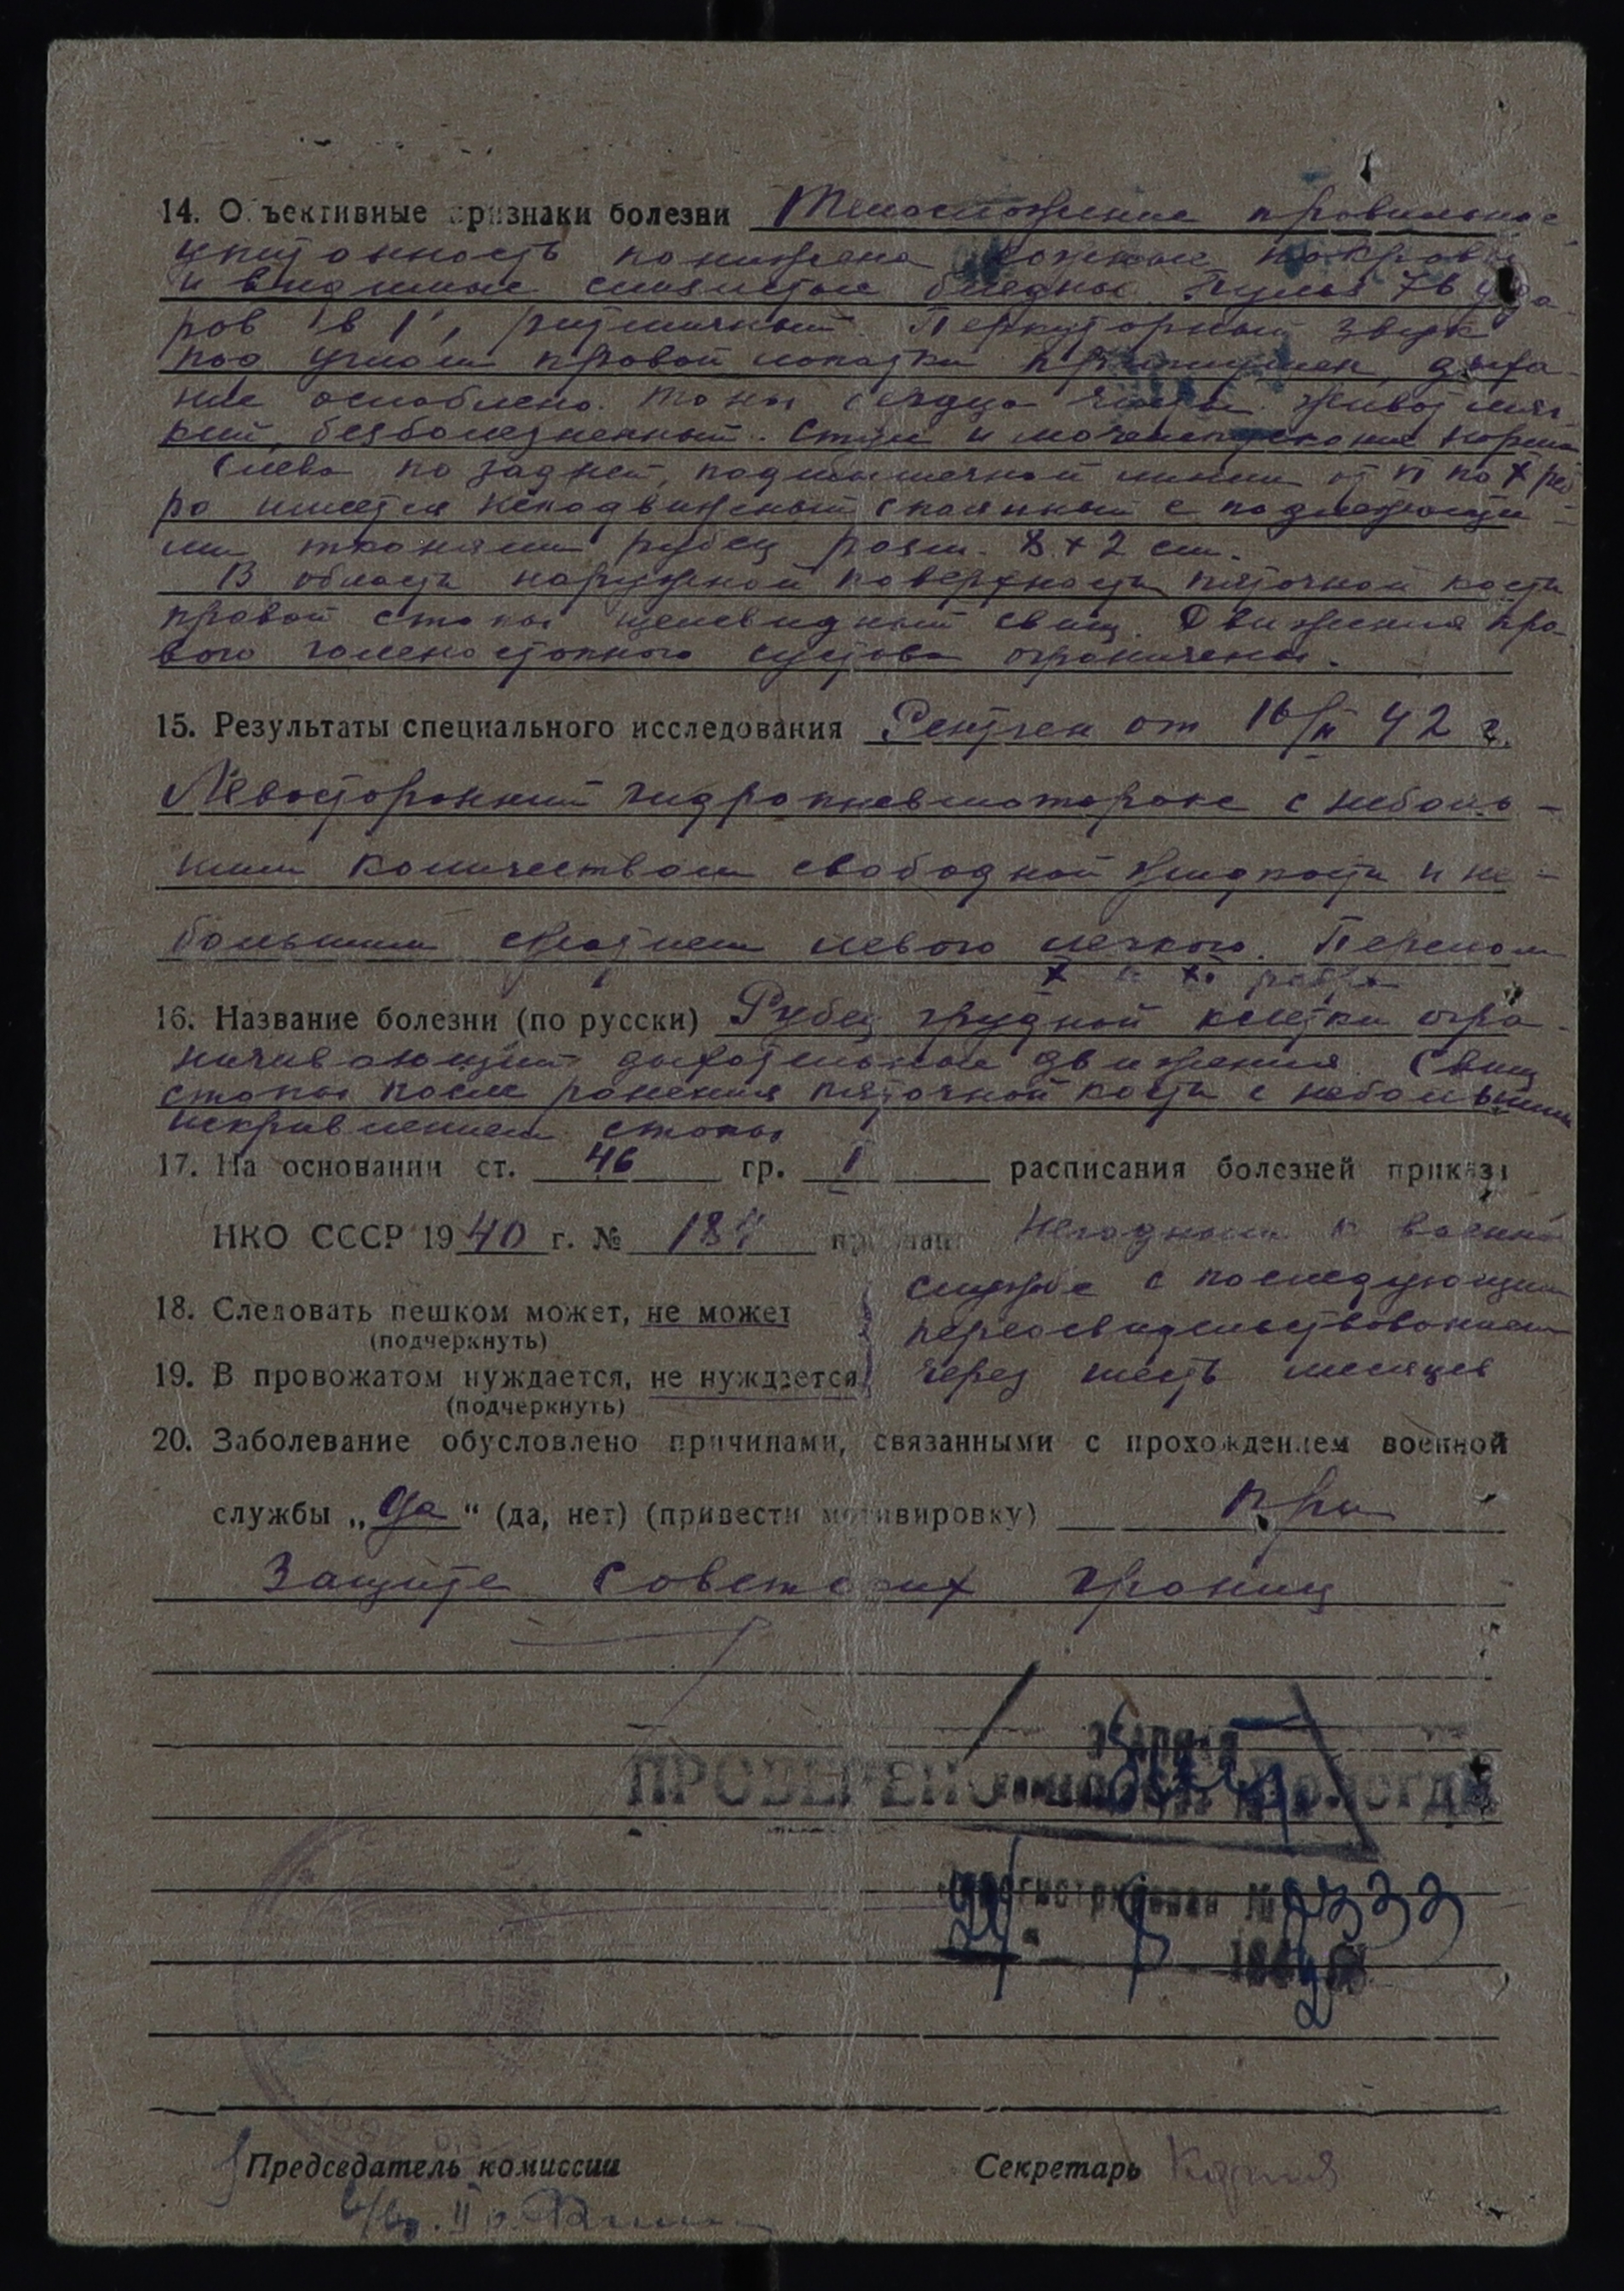 14. Объективные признаки болезни Телосложение правильное
упитанность понижена кожные покровы
и видимые слизистые бледны. Пульс 76 уда-
ров в 1', ритмичный. Перкуторный звук
под углом правой лопатки притуплен, дыха-
ние ослаблено. Тоны сердца чисты. Живот мяг-
кий, безболезненный. Стул и мочеиспускание норма
Слева по задней, подмышечной линии от VI по X реб
ра имеется неподвижный спаянный с подлежащи-
ми тканями рубец разм. 8 х 2 см.
В области наружной поверхности пяточной кости
правой стопы щелевидный свищ. Движения пра-
вого голеностопного сустава ограничены.
15. Результаты специального исследования Рентген от 16/II 42 г.
Левосторонний гидропневмоторакс с неболь-
шим количеством свободной жидкости и не-
большим сжатием левого легкого. Перелом
X и XI ребра
16. Название болезни (по русски) Рубец грудной клетки огра-
ничивающий дыхательные движения. Свищ
стопы после ранения пяточной кости с небольшим
искривлением стопы
17. На основании ст. 46 гр. I расписания болезней приказа
НКО СССР 1940 г. № 184 признан Негодным к военной
службе с последующим
18. Следовать пешком может, не может
переосвидетельствованием
(подчеркнуть)
19. В провожатом нуждается, не нуждается через шесть месяцев
(подчеркнуть)
20. Заболевание обусловлено причинами, связанными с прохождением военной
службы „да“ (да, нет) (привести мотивировку) при
защите советских границ
ПРОВЕРЕНО
Зарегистрирован № 2733
Председатель комиссии
Секретарь